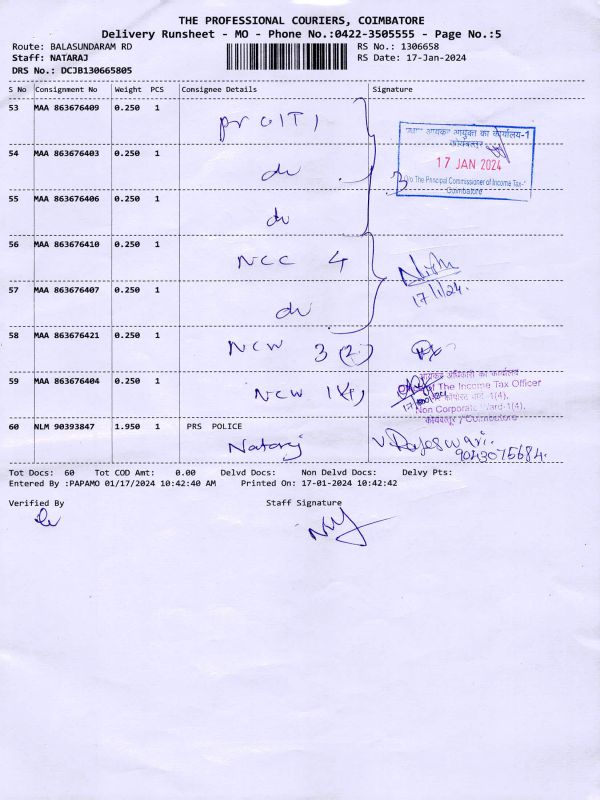 THE PROFESSIONAL COURIERS, COIMBATORE
Delivery Runsheet - MO - Phone No.:0422-3505555 - Page No.:5
Route: BALASUNDARAM RD RS No.: 1306658
Staff: NATARAJ RS Date: 17-Jan-2024
DRS No.: DCJB130665805
S No Consignment No Weight PCS Consignee Details Signature
53 MAA 863676409 0.250 1
आयकर आयुक्त का कार्यालय-1
कोयंबत्तूर
17 JAN 2024
O/o The Principal Commissioner of Income Tax-
Coimbatore
54 MAA 863676403 0.250 1 do
55 MAA 863676406 0.250 1 do
56 MAA 863676410 0.250 1 NCC 4
17/1/24.
57 MAA 863676407 0.250 1 do
58 MAA 863676421 0.250 1 NCW 3 (2)
59 MAA 863676404 0.250 1 NCW 1(4)
आयकर अधिकारी का कार्यालय
of The Income Tax Officer
वार्ड -1(4),
Non Corporate Ward-1(4),
कोयंबत्तूर / Coimbatore
60 NLM 90393847 1.950 1 PRS POLICE
Nataraj V. Rajeswari.
9043075684.
Tot Docs: 60 Tot COD Amt: 0.00 Delvd Docs: Non Delvd Docs: Delvy Pts:
Entered By :PAPAMO 01/17/2024 10:42:40 AM Printed On: 17-01-2024 10:42:42
Verified By Staff Signature